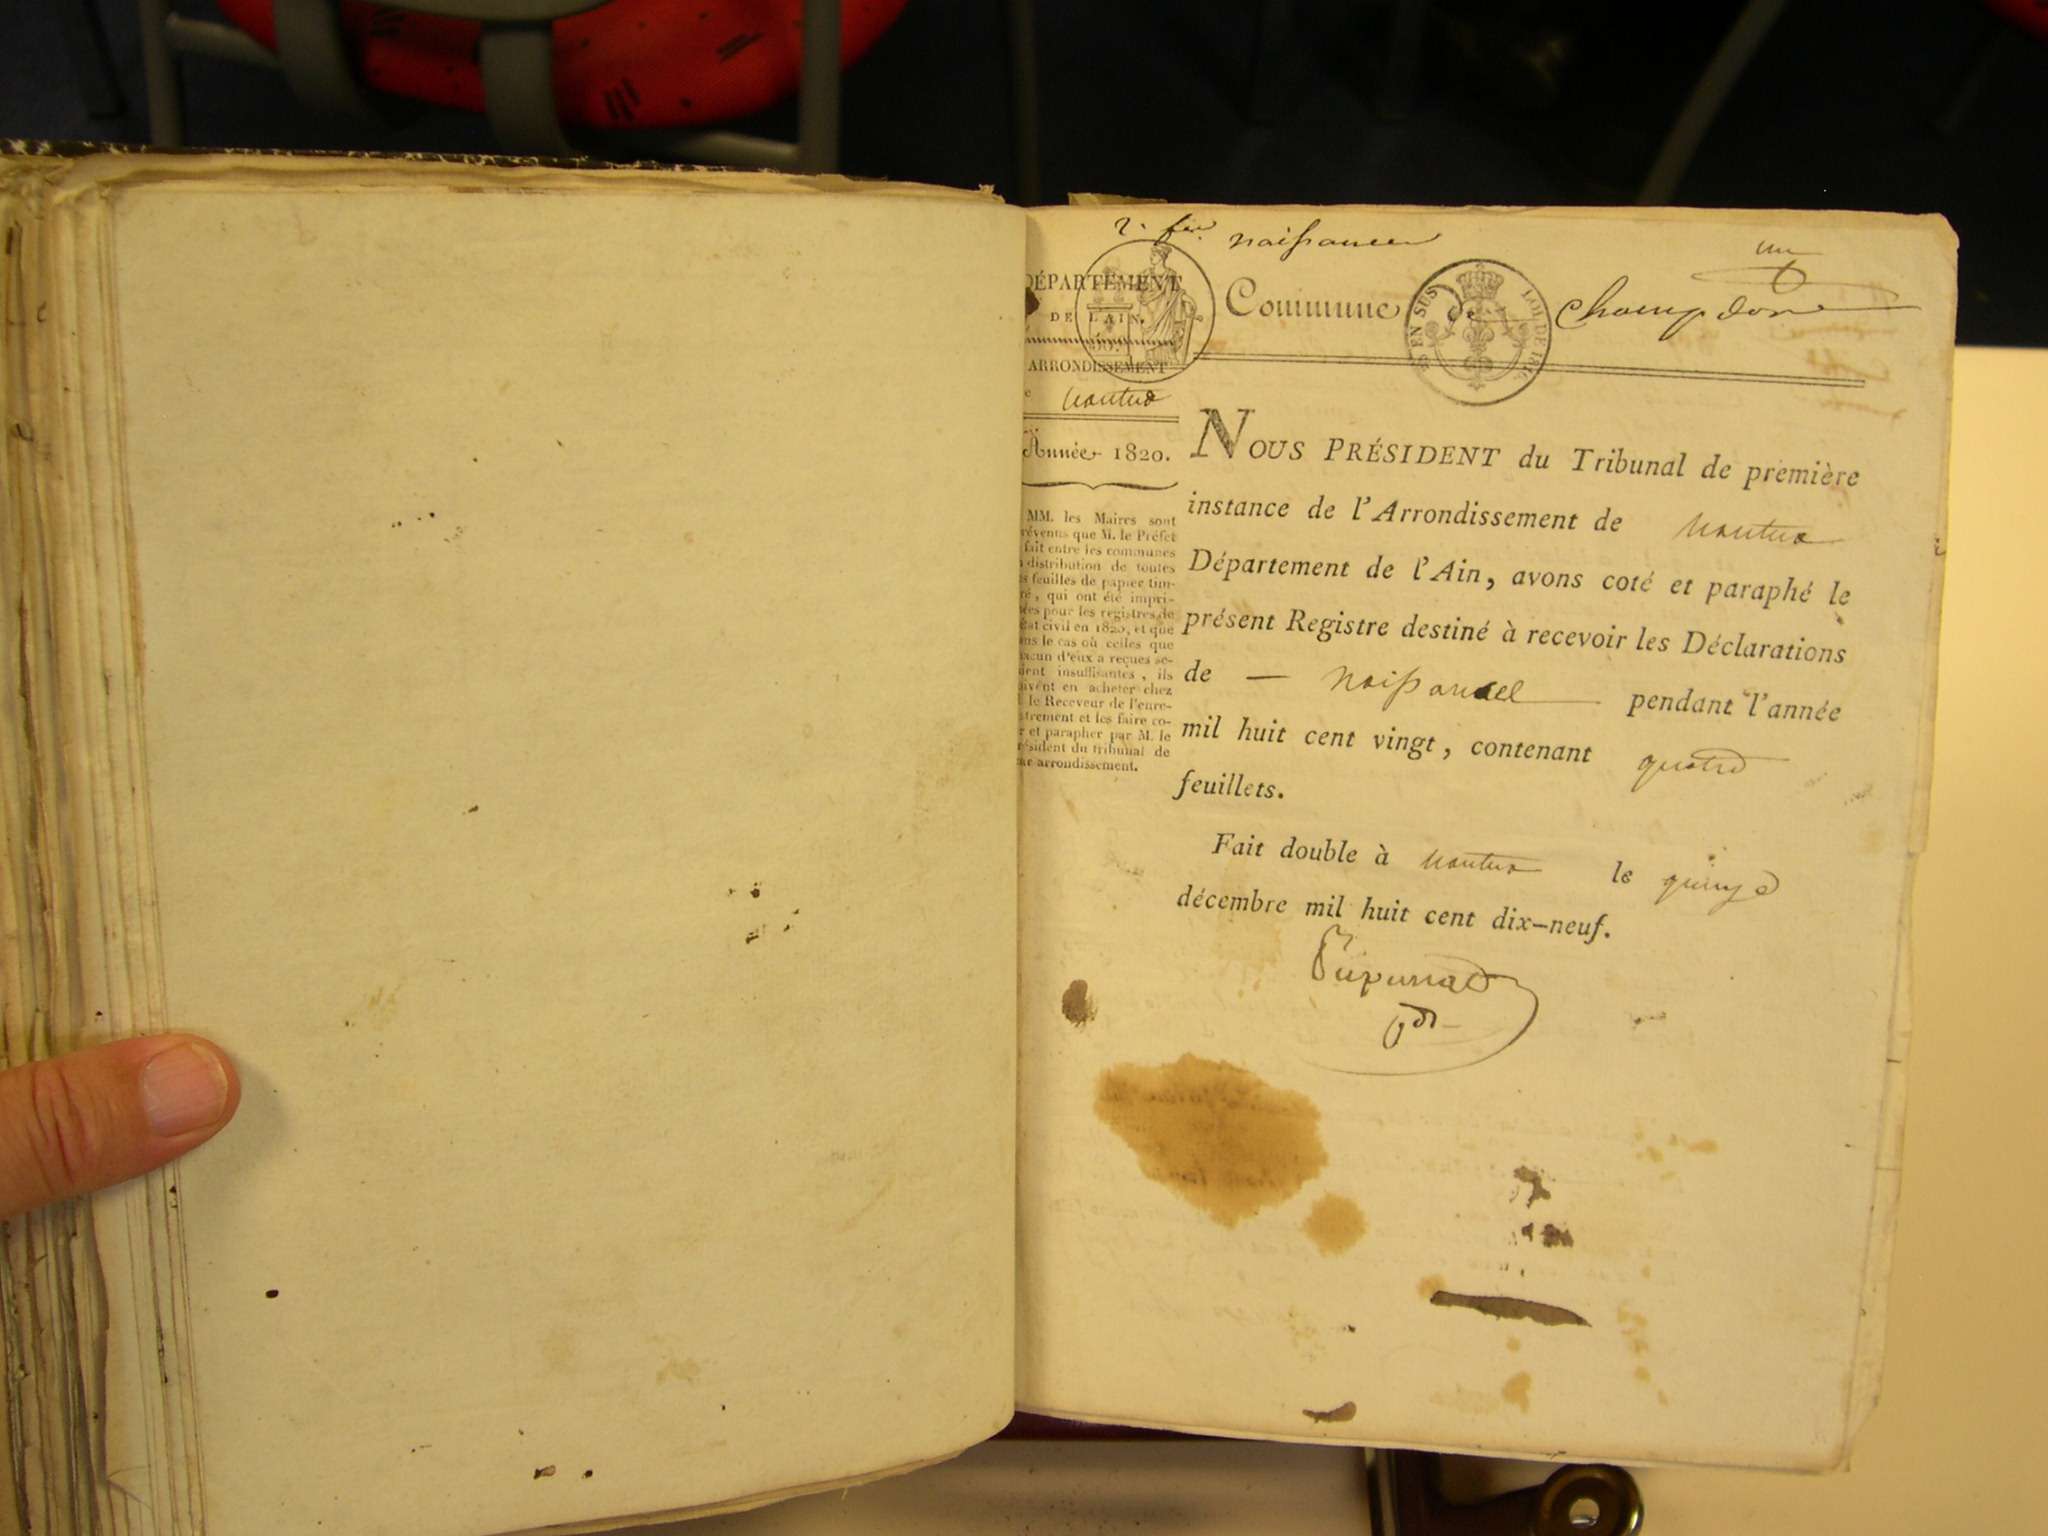 naissances
un
DÉPARTEMENT
DE L'AIN.
Commune de Champdor
EN SUS
LOI DE 1816.
ARRONDISSEMENT
Nantua
Année 1820.
MM. les Maires sont
révenus que M. le Préfet
fait entre les communes
distribution de toutes
s feuilles de papier tim-
ré, qui ont été impri-
ées pour les registres de
état civil en 1820, et que
ans le cas où celles que
acun d'eux a reçues se-
ient insuffisantes, ils
oivent en acheter chez
le Receveur de l'enre-
strement et les faire co-
r et parapher par M. le
résident du tribunal de
ur arrondissement.
NOUS PRÉSIDENT du Tribunal de première
instance de l'Arrondissement de Nantua
Département de l'Ain, avons coté et paraphé le
présent Registre destiné à recevoir les Déclarations
de — naissances pendant l'année
mil huit cent vingt, contenant quatre
feuillets.
Fait double à Nantua le quinze
décembre mil huit cent dix-neuf.